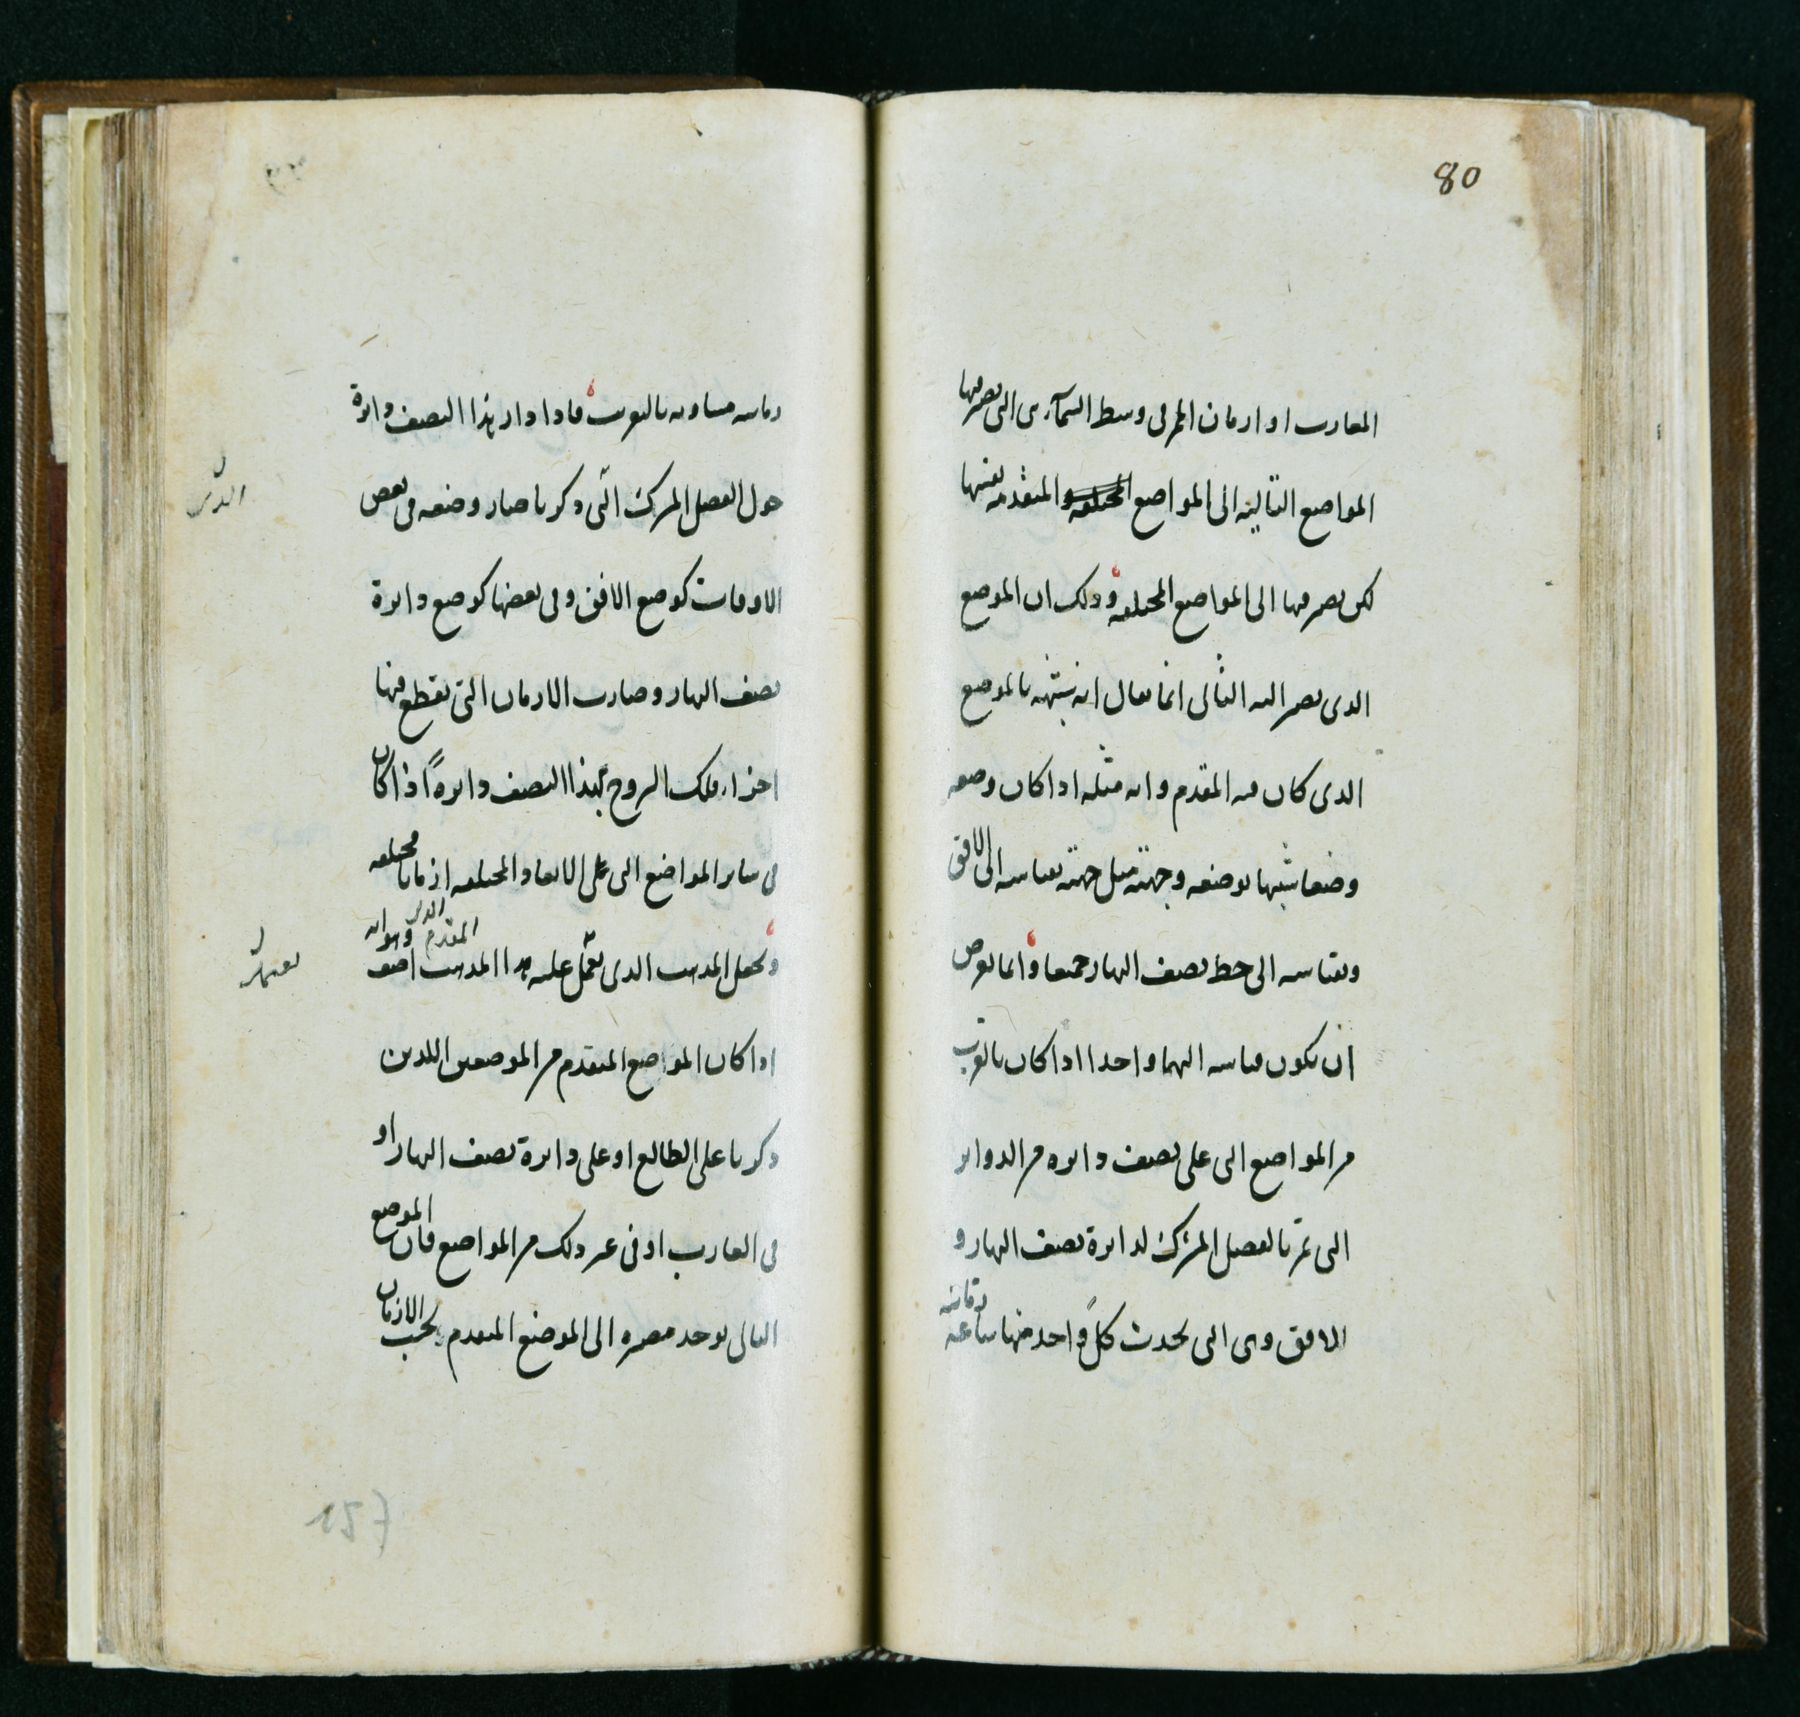 80
المغارب او ازمان الممر فى وسط السمآء هى التى تصير فيها
المواضع التاليه الى المواضع المختلفه والمتقدمه بعينها
لكن تصير فيها الى المواضع المختلفة وذلك ان الموضع
الذى يصير اليه التالى انما يقال انه شبيه بالموضع
الذى كان فيه المتقدم وانه مثله اذا كان وضعه
وضعا شبيها بوضعه وجهته مثل جهته بقياسه الى الافق
وبقياسه الى خط نصف النهار جميعا وانما يعرض
ان يكون قياسه اليهما واحدا اذا كان بالقرب
من المواضع التى على نصف دائره من الدوائر
التى تمر بالفصل المشترك لدائرة نصف النهار و
الافق وهى التى يحدث كل واحد منها ساعة
زمانيه
زمانيه مساويه بالتقريب فاذا ادار هذا النصف دائرة
حول الفصل المشترك الذى ذكرنا صار وضعه فى بعض
الذى
الاوقات كوضع الافق وفى بعضها كوضع دائرة
نصف النهار وصارت الازمان التى يقطع فيها
اجزاء فلك البروج بهذا النصف دائرة اذا كان
فى سائر المواضع التى على الابعاد المختلفه ازمانا مختلفه
ونجعل المذهب الذى يعمل عليه هذا المذهب اصف
اذا كان المواضع المتقدم من الموضعين اللذين
ذكرنا على الطالع او على دائرة نصف النهار او
فى الغارب او فى غير ذلك من المواضع فان الموضع
التالى يوجد مصيره الى الموضع المتقدم بحسب الازمان
157